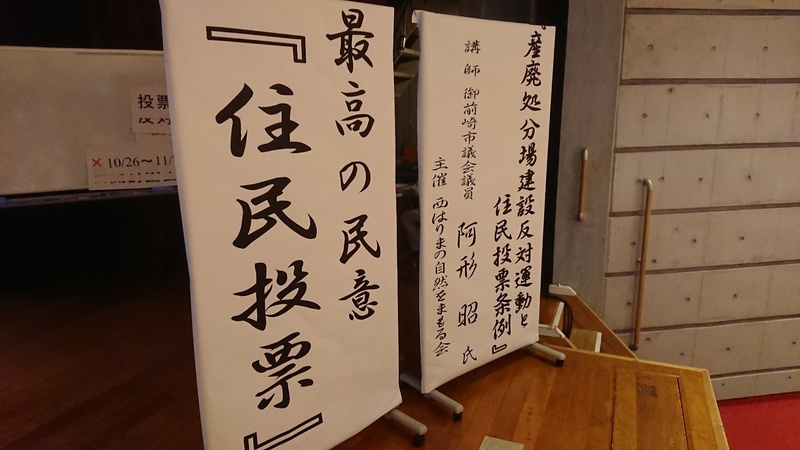 『産廃処分場建設反対運動と
住民投票条例』
講師 御前崎市議会議員 阿形 昭 氏
主催 西はりまの自然をまもる会
最高の民意
『住民投票』
投票
反対
×10/26～11/